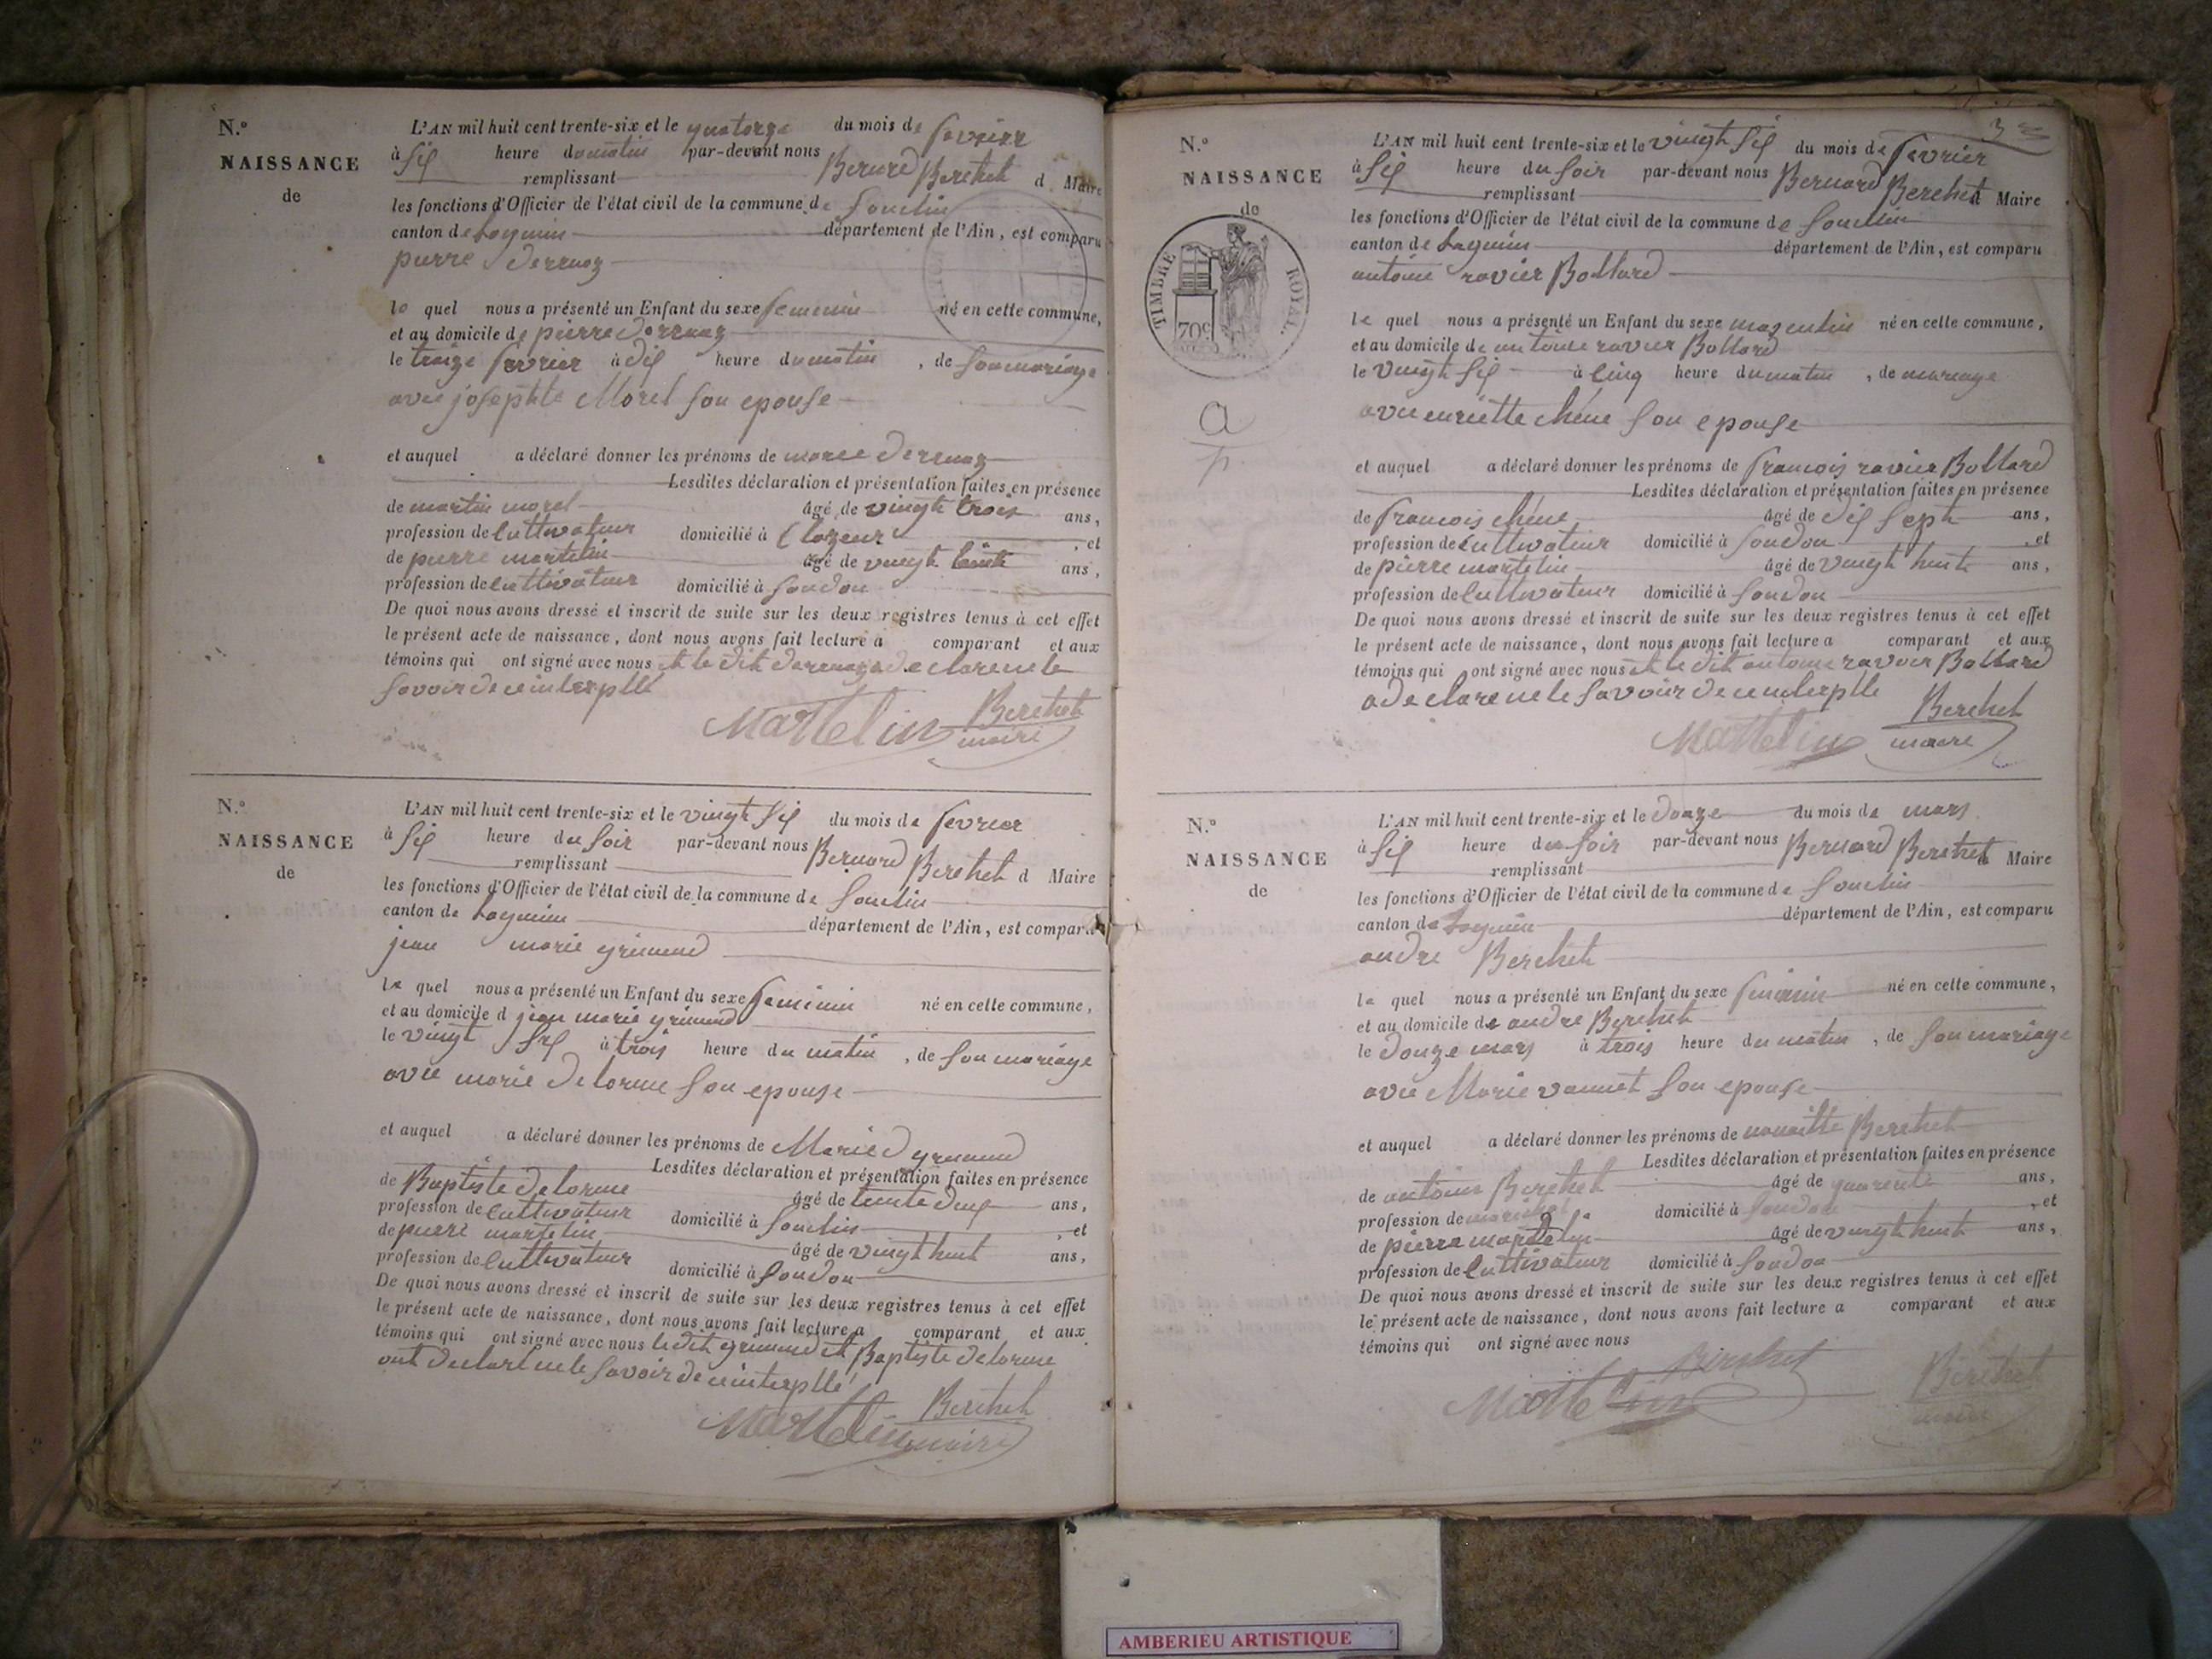 N.º
NAISSANCE
de
L'AN mil huit cent trente-six et le quatorze du mois de fevrier
à six heure du matin par-devant nous Bernard Berchet d Maire
remplissant
les fonctions d'Officier de l'état civil de la commune de Souclin
canton de Lagnieu département de l'Ain, est comparu
pierre derruaz
le quel nous a présenté un Enfant du sexe feminin né en cette commune,
et au domicile de pierre derruaz
le traize fevrier à dix heure du matin, de son mariage
avec josephte Morel son epouse
et auquel a déclaré donner les prénoms de marie derruaz
Lesdites déclaration et présentation faites en présence
de martin morel âgé de vingt trois ans,
profession de cultivateur domicilié à , et
de pierre martelin âgé de vingt huit ans,
profession de cultivateur domicilié à Soudon
De quoi nous avons dressé et inscrit de suite sur les deux registres tenus à cet effet
le présent acte de naissance, dont nous avons fait lecture a comparant et aux
témoins qui ont signé avec nous et le dit derruaz a declare ne le
savoir de ce interpllé
Martelin Berchet
maire
N.º
NAISSANCE
de
L'AN mil huit cent trente-six et le vingt six du mois de fevrier
à six heure du soir par-devant nous Bernard Berchet d Maire
remplissant
les fonctions d'Officier de l'état civil de la commune de Souclin
canton de Lagnieu département de l'Ain, est comparu
jean marie grimand
le quel nous a présenté un Enfant du sexe feminin né en cette commune,
et au domicile d jean marie grimand
le vingt six à trois heure du matin, de son mariage
avec marie delorme son epouse
et auquel a déclaré donner les prénoms de Marie grimand
Lesdites déclaration et présentation faites en présence
de Baptiste delorme âgé de trente deux ans,
profession de cultivateur domicilié à Souclin , et
de pierre martelin âgé de vingt huit ans,
profession de cultivateur domicilié à Soudon
De quoi nous avons dressé et inscrit de suite sur les deux registres tenus à cet effet
le présent acte de naissance, dont nous avons fait lecture a comparant et aux
témoins qui ont signé avec nous le dit grimand et Baptiste delorme
ont declare ne le savoir de ce interpllé
Martelin Berchet
maire
3
N.º
NAISSANCE
de
TIMBRE ROYAL.
70c
a
p
L'AN mil huit cent trente-six et le vingt six du mois de fevrier
à six heure du soir par-devant nous Bernard Berchet d Maire
remplissant
les fonctions d'Officier de l'état civil de la commune de Souclin
canton de Lagnieu département de l'Ain, est comparu
antoine ravier Bollard
le quel nous a présenté un Enfant du sexe masculin né en cette commune,
et au domicile de antoine ravier Bollard
le vingt six à cinq heure du matin, de mariage
avec enriette chéne son epouse
et auquel a déclaré donner les prénoms de francois ravier Bollard
Lesdites déclaration et présentation faites en présence
de francois chéne âgé de dix sept ans,
profession de cultivateur domicilié à Soudon , et
de pierre martelin âgé de vingt huit ans,
profession de cultivateur domicilié à Soudon
De quoi nous avons dressé et inscrit de suite sur les deux registres tenus à cet effet
le présent acte de naissance, dont nous avons fait lecture a comparant et aux
témoins qui ont signé avec nous et le dit antoine ravier Bollard
a declare ne le savoir de ce interpllé
Martelin Berchet
maire
N.º
NAISSANCE
de
L'AN mil huit cent trente-six et le douze du mois de mars
à six heure du soir par-devant nous Bernard Berchet d Maire
remplissant
les fonctions d'Officier de l'état civil de la commune de Souclin
canton de Lagnieu département de l'Ain, est comparu
andre Berchet
le quel nous a présenté un Enfant du sexe feminin né en cette commune,
et au domicile de andre Berchet
le douze mars à trois heure du matin, de son mariage
avec Marie vannet son epouse
et auquel a déclaré donner les prénoms de Berchet
Lesdites déclaration et présentation faites en présence
de antoine Berchet âgé de quarente ans,
profession de domicilié à Soudon , et
de pierre martelin âgé de vingt huit ans,
profession de cultivateur domicilié à Soudon
De quoi nous avons dressé et inscrit de suite sur les deux registres tenus à cet effet
le présent acte de naissance, dont nous avons fait lecture a comparant et aux
témoins qui ont signé avec nous
Martelin Berchet Berchet
maire
AMBERIEU ARTISTIQUE